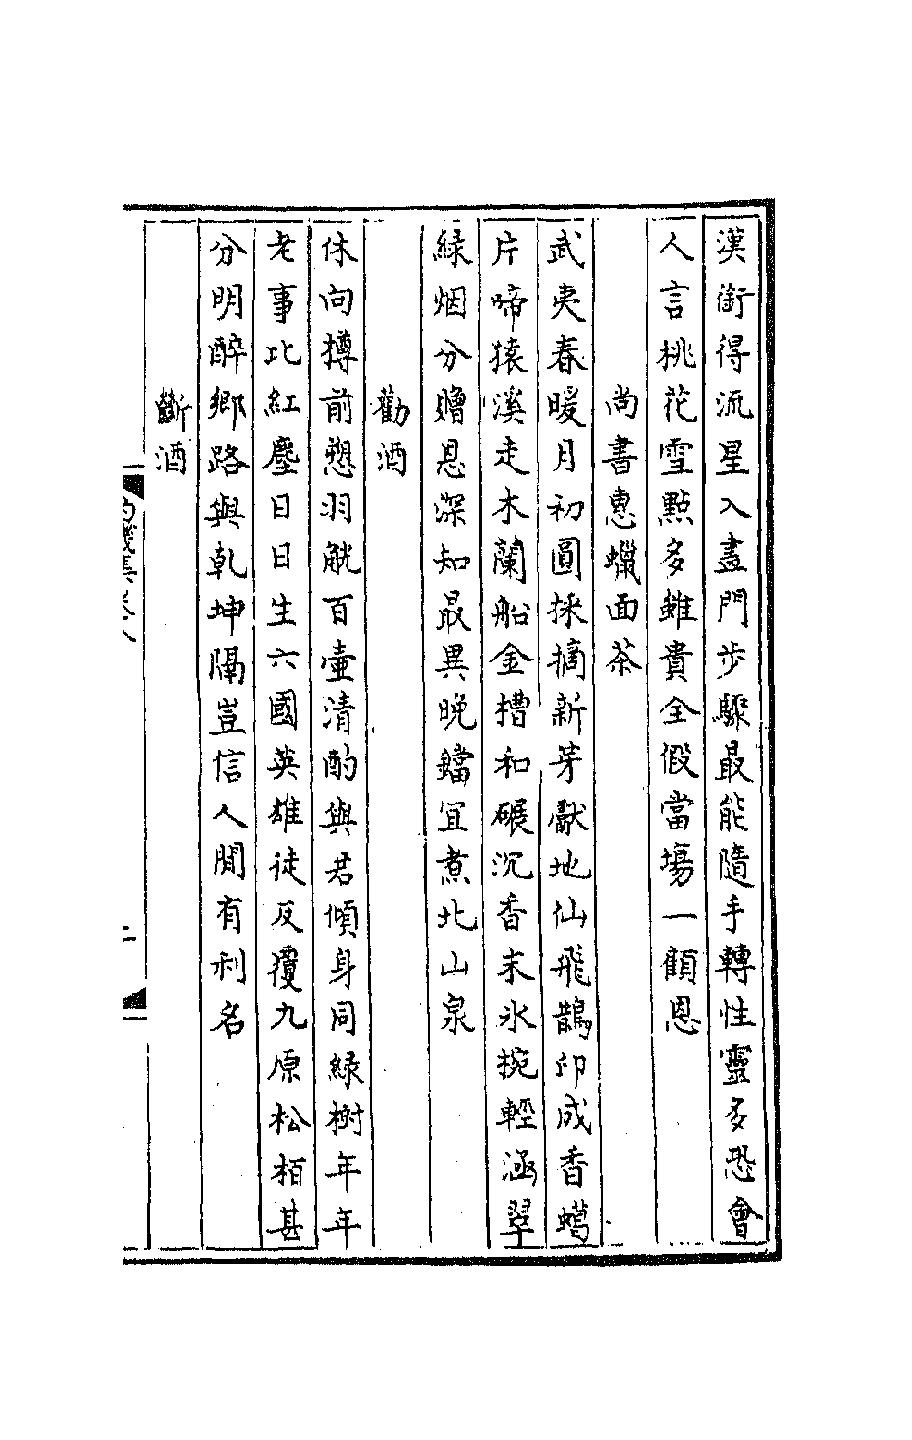 漢銜得流星入畫門步驟最能隨手轉性靈多恐會
人言桃花雪㸃多雖貴全假當場一顧恩
尚書惠蠟面茶
武夷春暖月初圓採摘新芽獻地仙飛鵲印成香蠟
片啼猿溪走木蘭船金槽和碾沉香末氷椀輕涵翠
緑烟分贈恩深知最異晚鐺宜煮北山泉
勸酒
休向樽前愬羽觥百壷清酌與君傾身同緑樹年年
老事比紅塵日日生六國英雄徒反覆九原松栢甚
分明醉鄉路與乾坤隔豈信人間有利名
斷酒